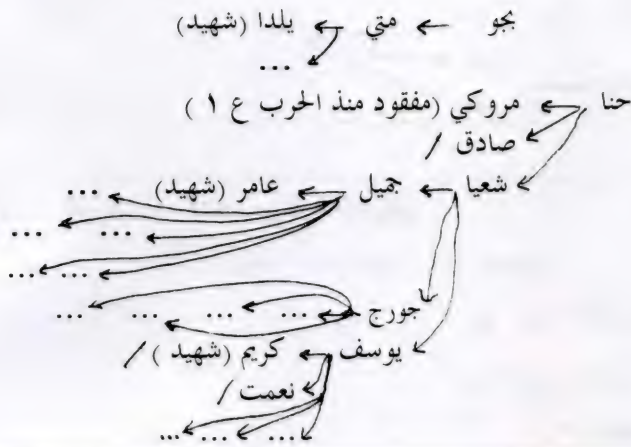 بجو متي يلدا (شهيد)
...
حنا مروكي (مفقود منذ الحرب ع ١ )
صادق /
شعيا جميل عامر (شهيد) ...
... ...
... ...
جورج ... ... ... ...
يوسف كريم (شهيد ) /
نعمت /
... ... ...